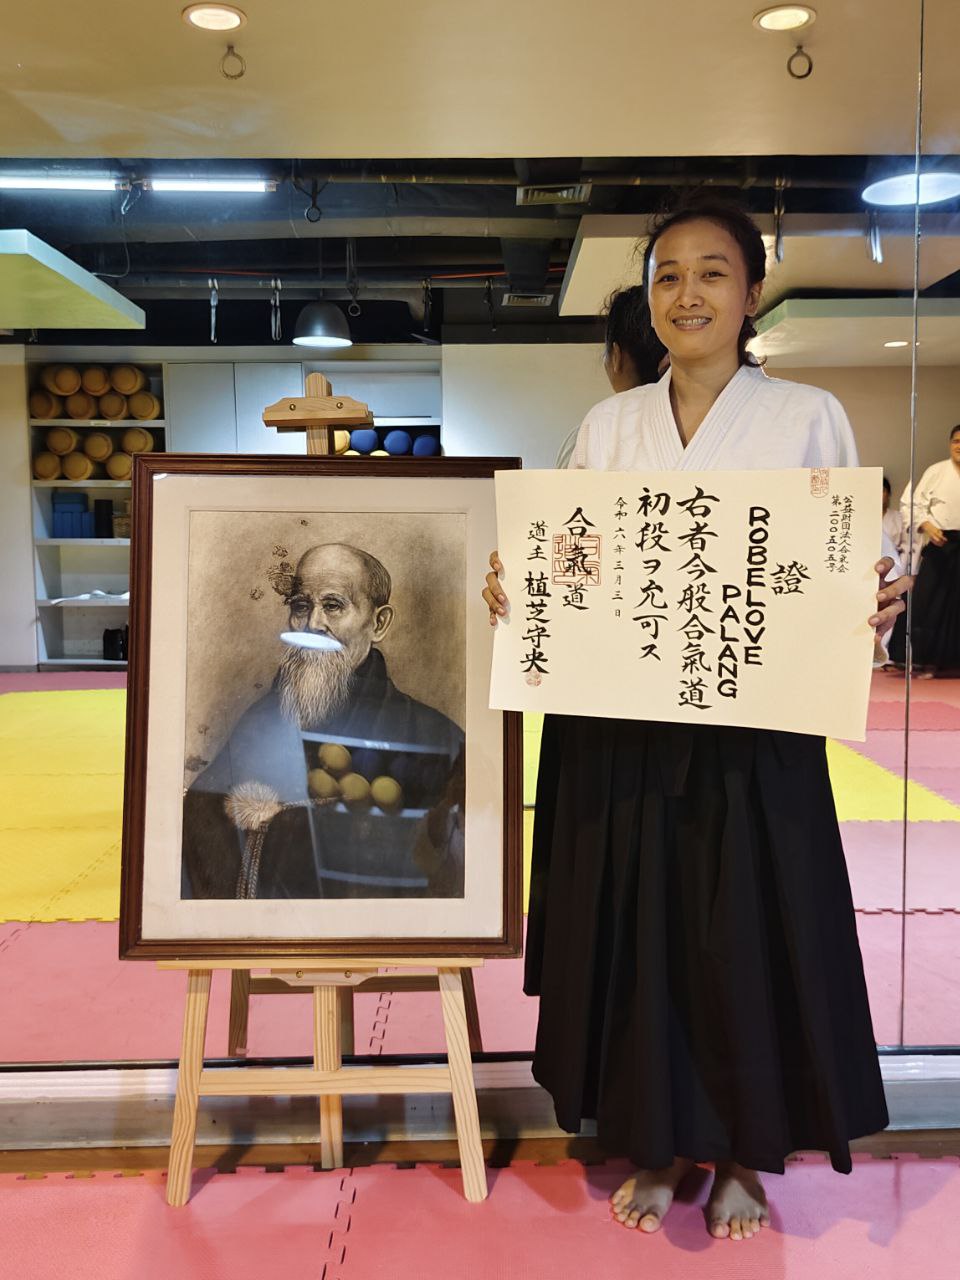 公益財団法人合氣会
第二〇〇五〇五号
證
ROBELOVE
PALANG
右者今般合氣道
初段ヲ允可ス
令和六年三月三日
合氣道
道主 植芝守央